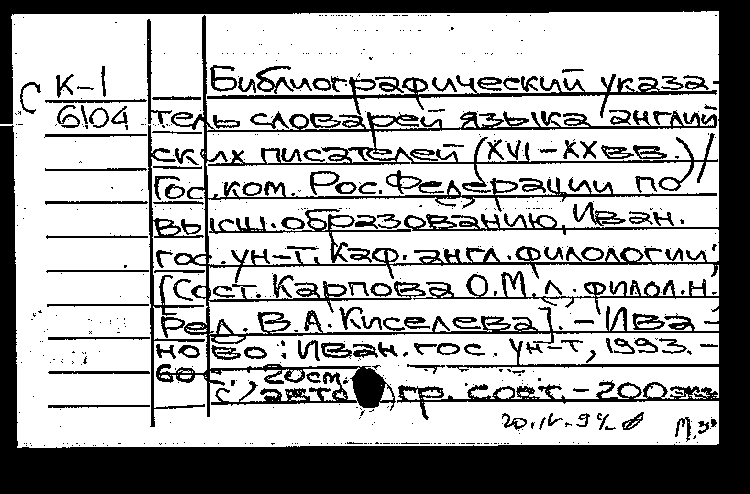 С К-1
6104
Библиографический указа-
тель словарей языка англий
ских писателей (XVI-XX вв.) /
Гос. ком. Рос. Федерации по
высш. образованию, Иван.
гос. ун-т. Каф. англ. филологии;
[Сост. Карпова О.М., филол. н.
Ред. В.А. Киселева]. - Ива-
ново: Иван. гос. ун-т, 1993. -
60 с., 20 см.
С авто гр. сост. - 200 экз
20.IV.94